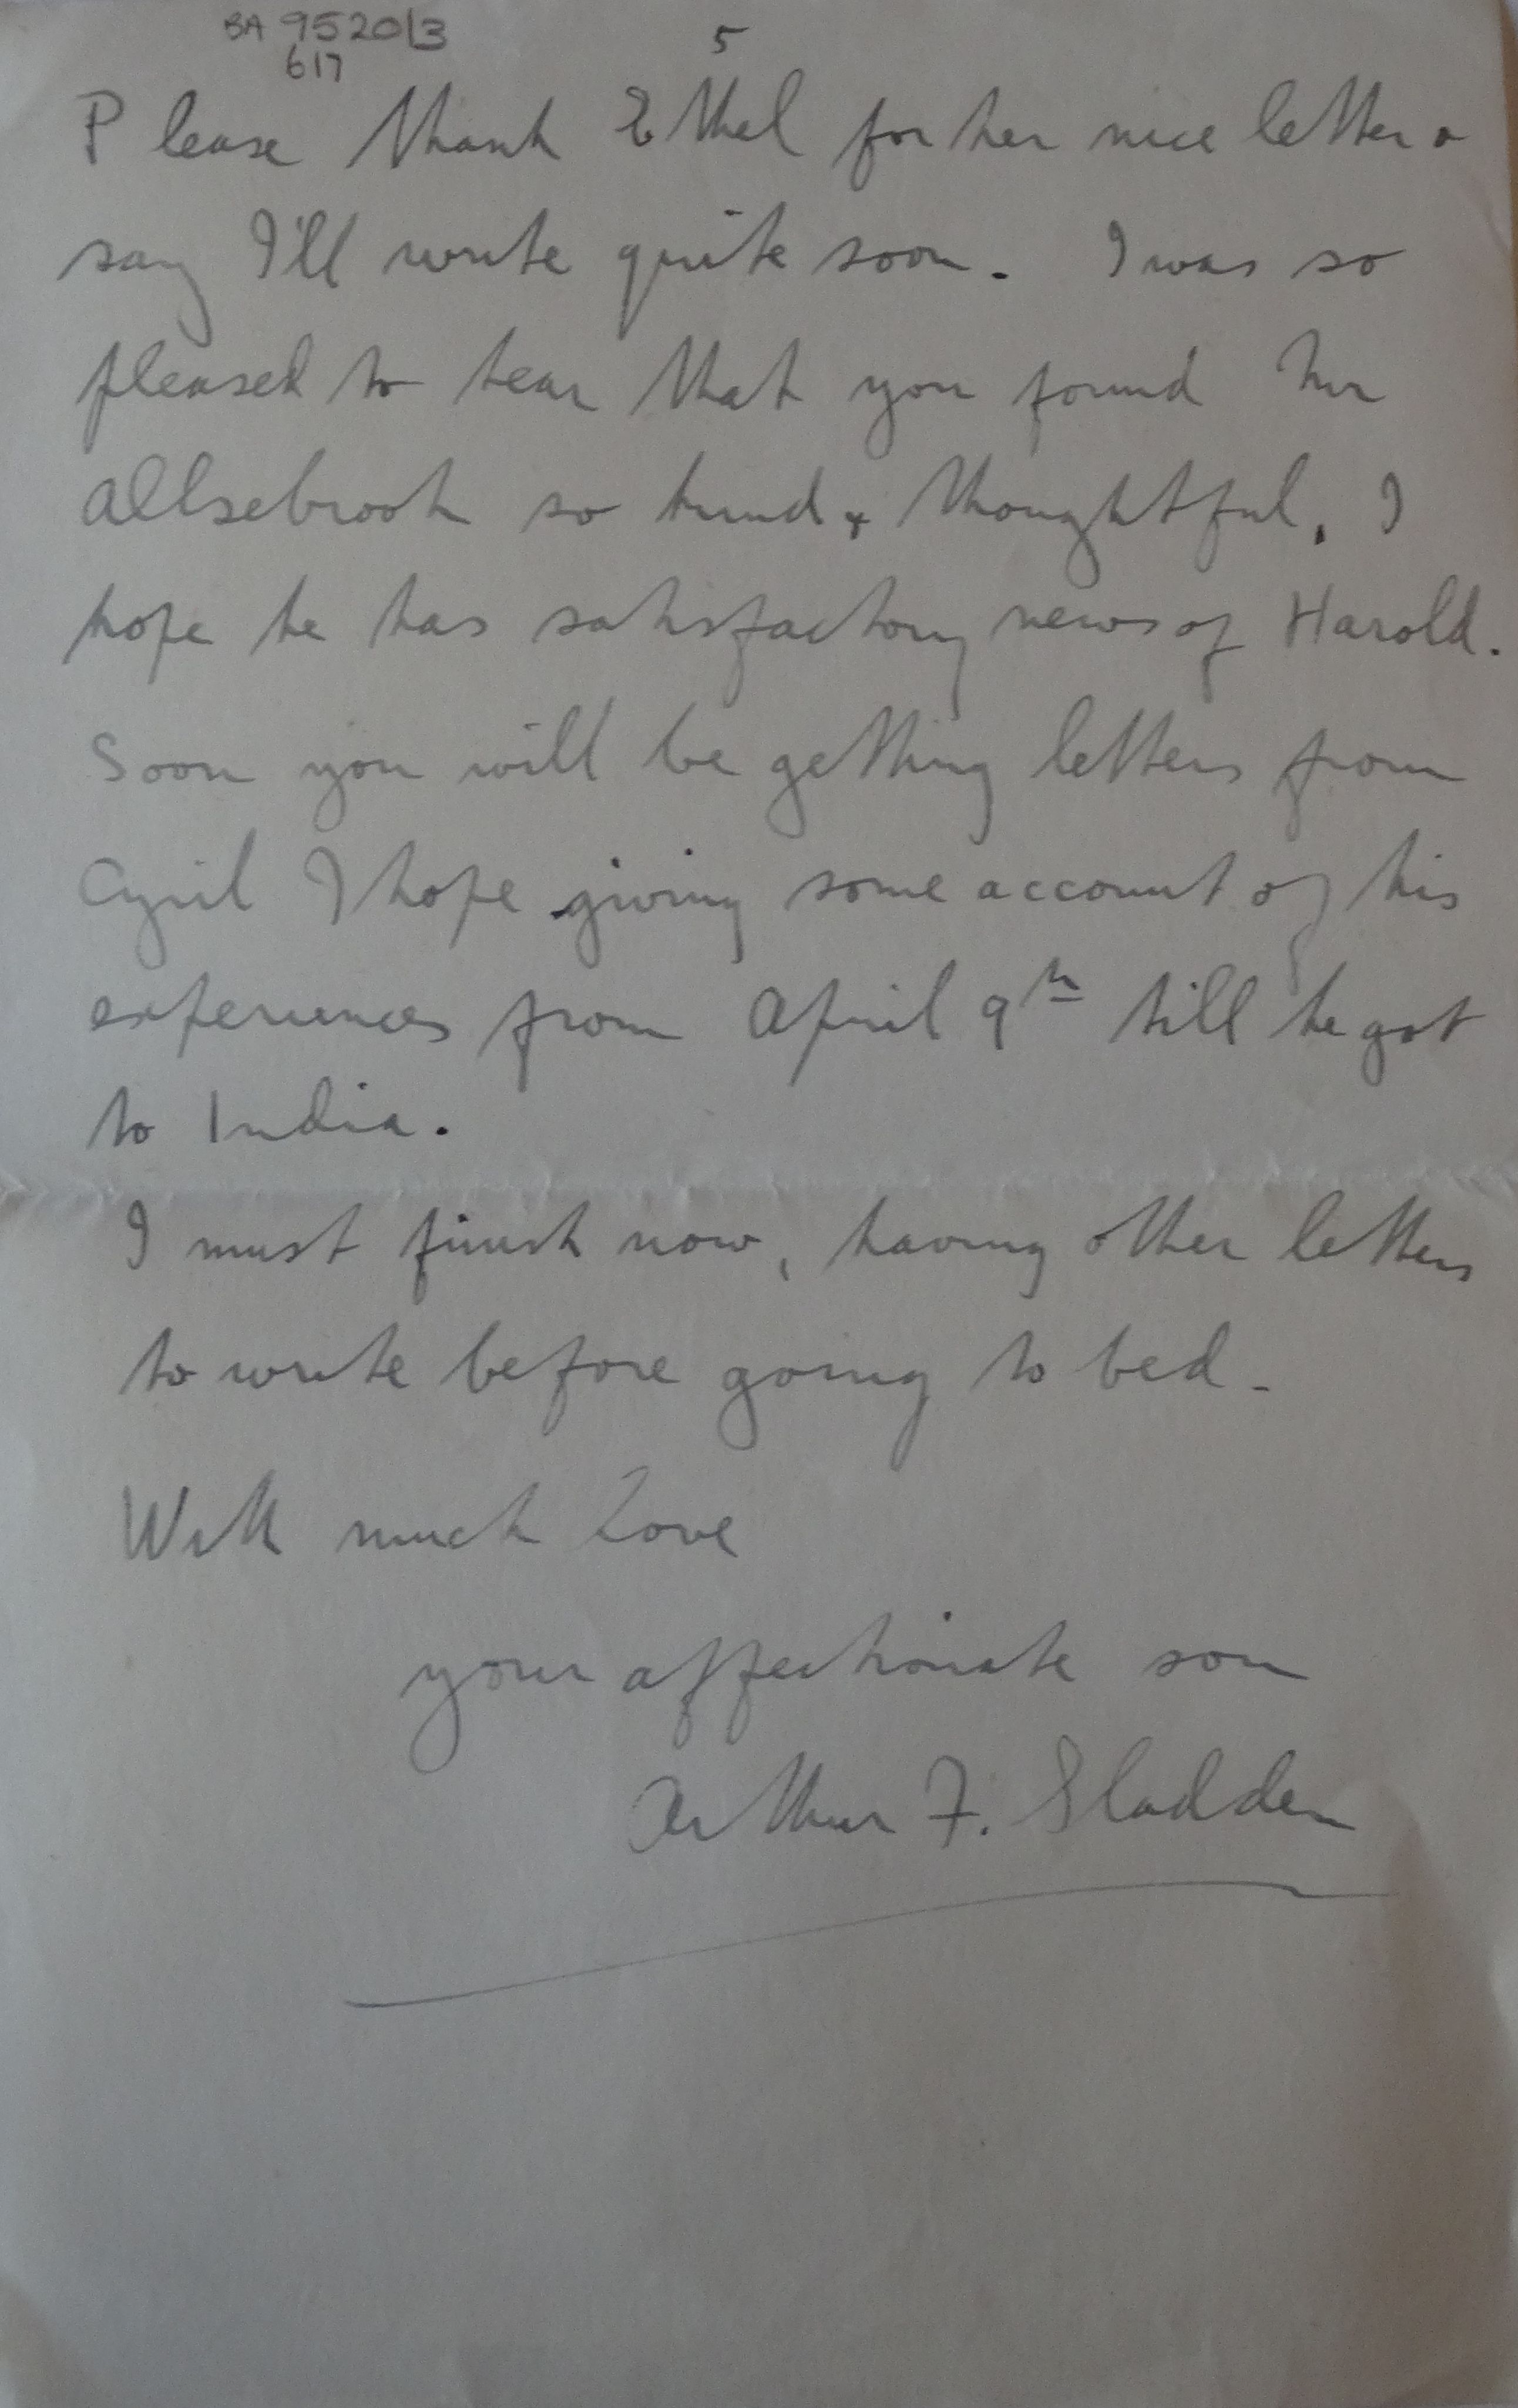 BA 9520/3
617
5
Please thank Ethel for her nice letter &
say I'll write quite soon. I was so
pleased to hear that you found Mr
Allsebrook so kind & thoughtful. I
hope he has satisfactory news of Harold.
Soon you will be getting letters from
Cyril I hope giving some account of his
experiences from April 9th till he got
to India.
I must finish now, having other letters
to write before going to bed.
With much love
your affectionate son
Arthur F. Sladden